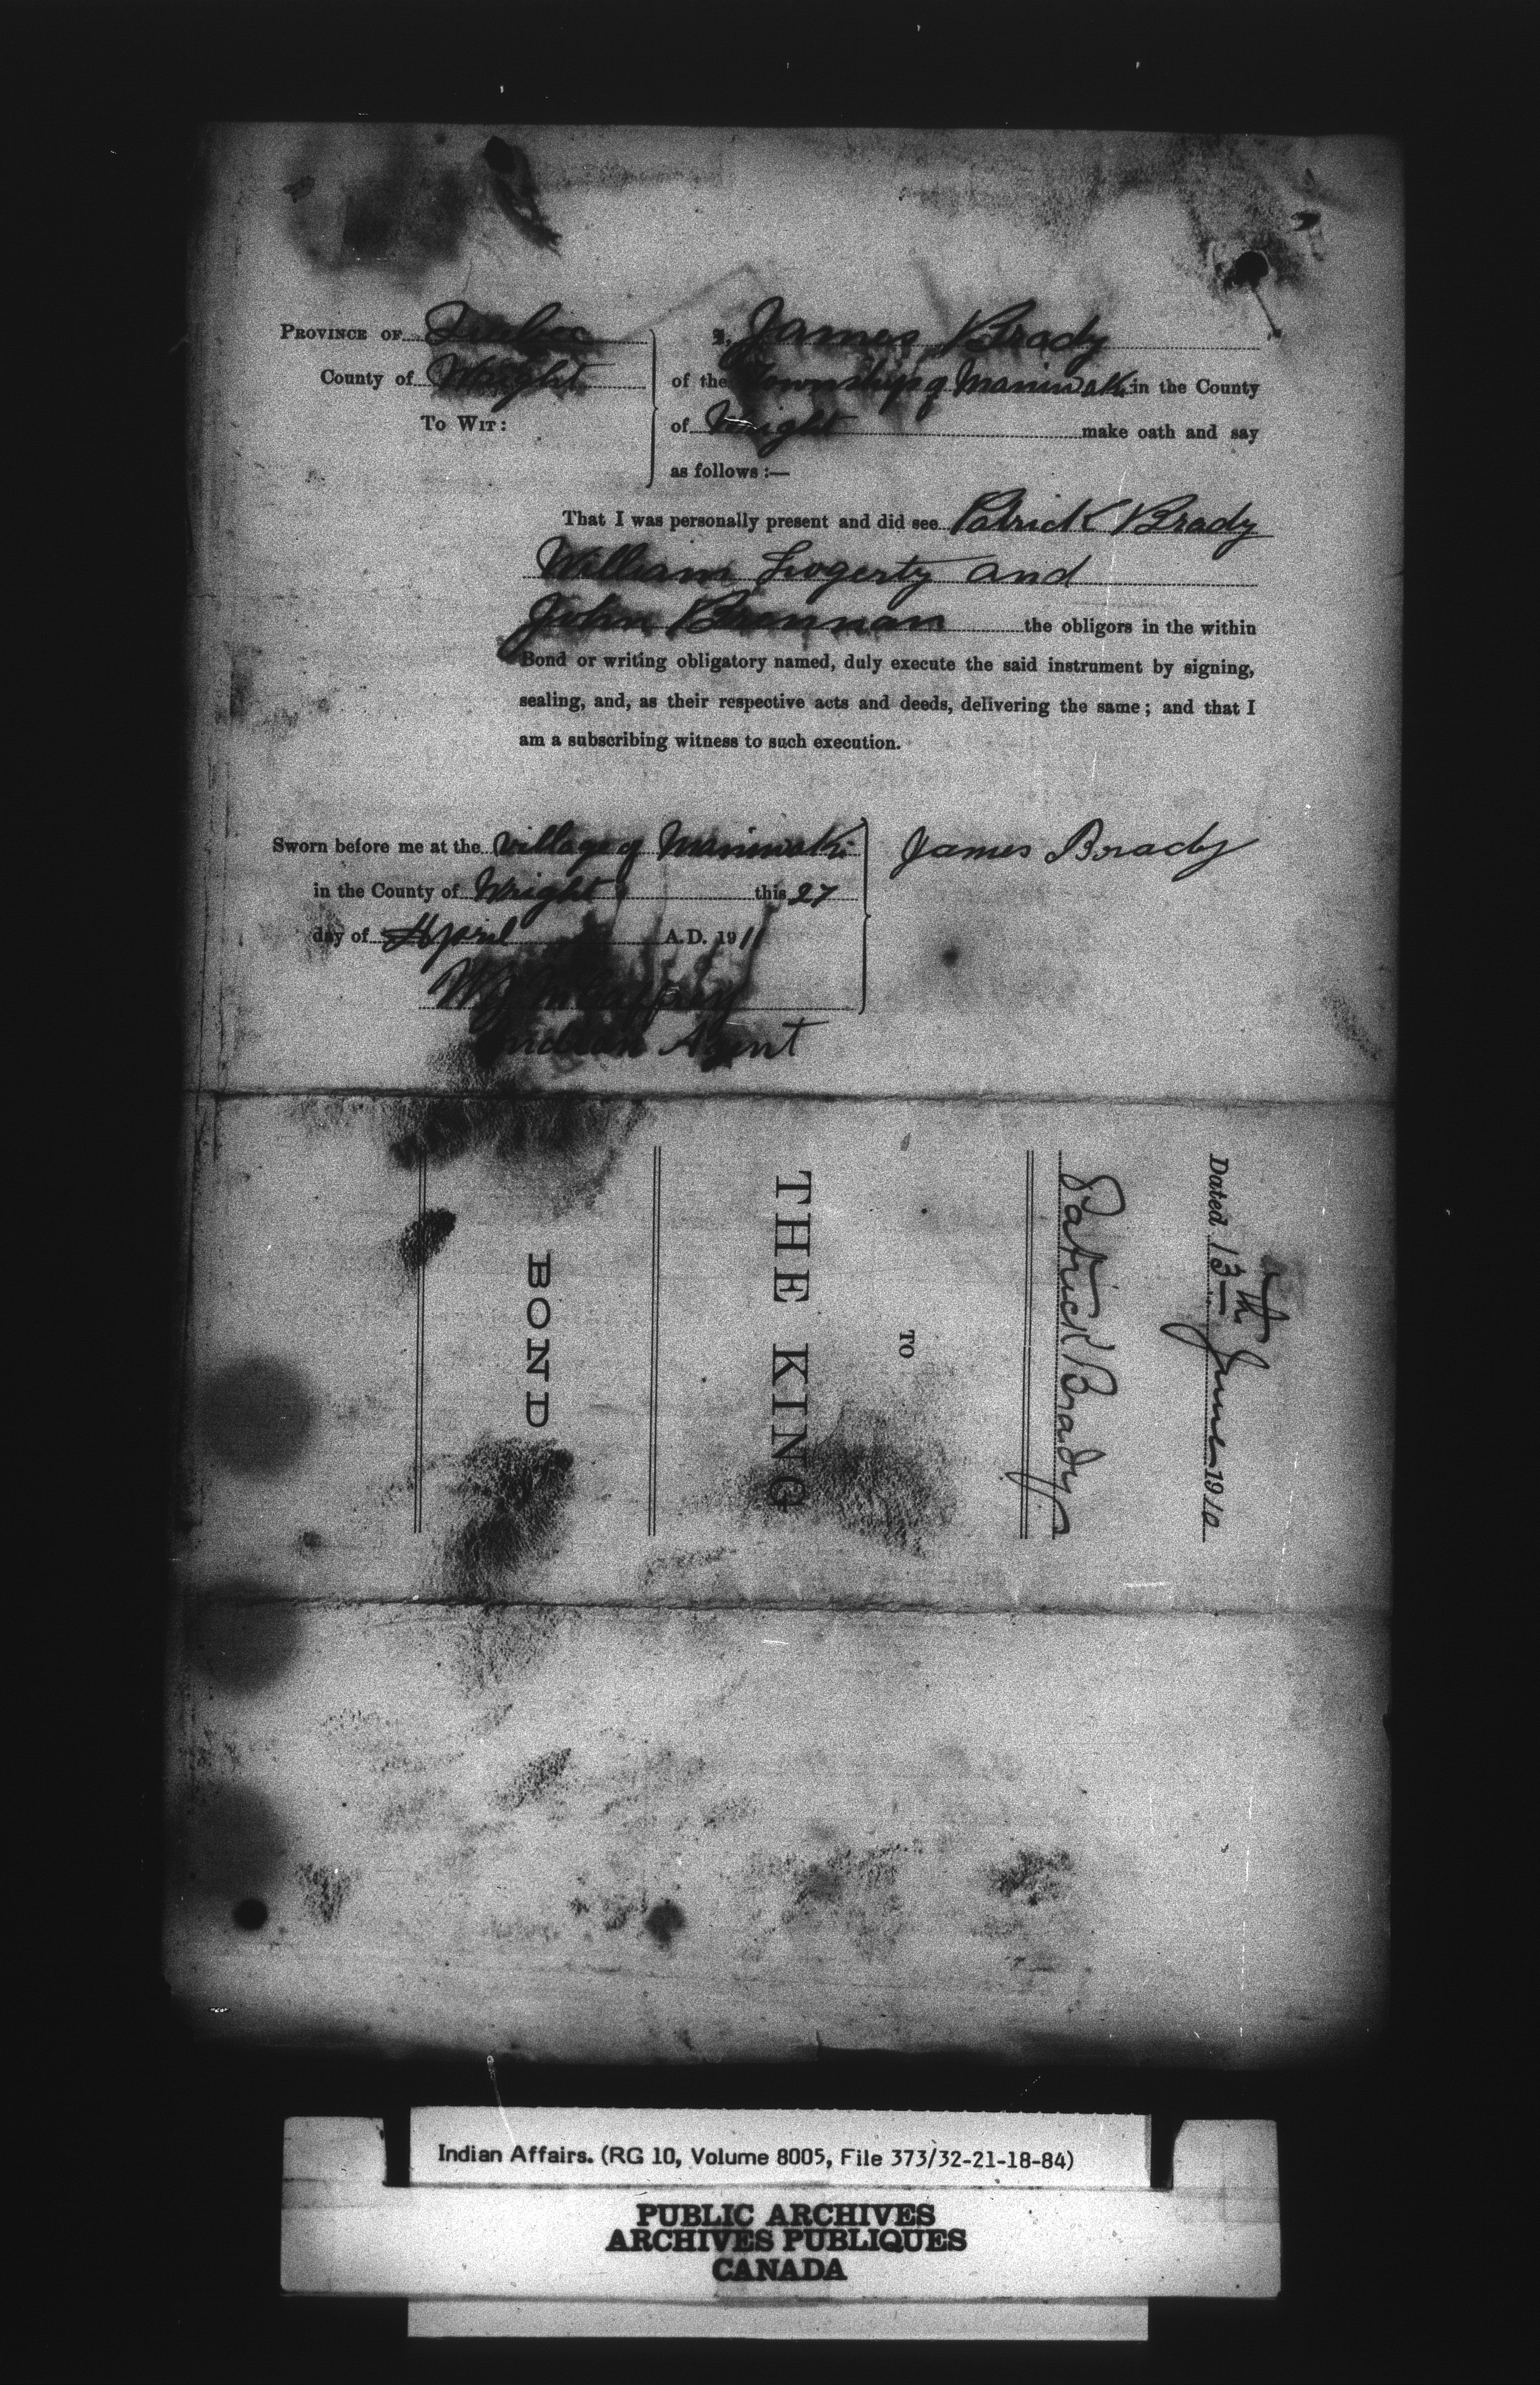 PROVINCE OF Quebec
County of Wright
TO WIT:
I, James Brady
of the Township of Maniwaki in the County
of Wright make oath and say
as follows :—
That I was personally present and did see Patrick Brady
William Fogerty and
John Brennan the obligors in the within
Bond or writing obligatory named, duly execute the said instrument by signing,
sealing, and, as their respective acts and deeds, delivering the same; and that I
am a subscribing witness to such execution.
Sworn before me at the village of Maniwaki
in the County of Wright this 27
day of April A.D. 1911
James Brady
W J McCaffrey
Indian Agent
Dated 13th June 1910
Patrick Brady
TO
THE KING
BOND
Indian Affairs. (RG 10, Volume 8005, File 373/32-21-18-84)
PUBLIC ARCHIVES
ARCHIVES PUBLIQUES
CANADA